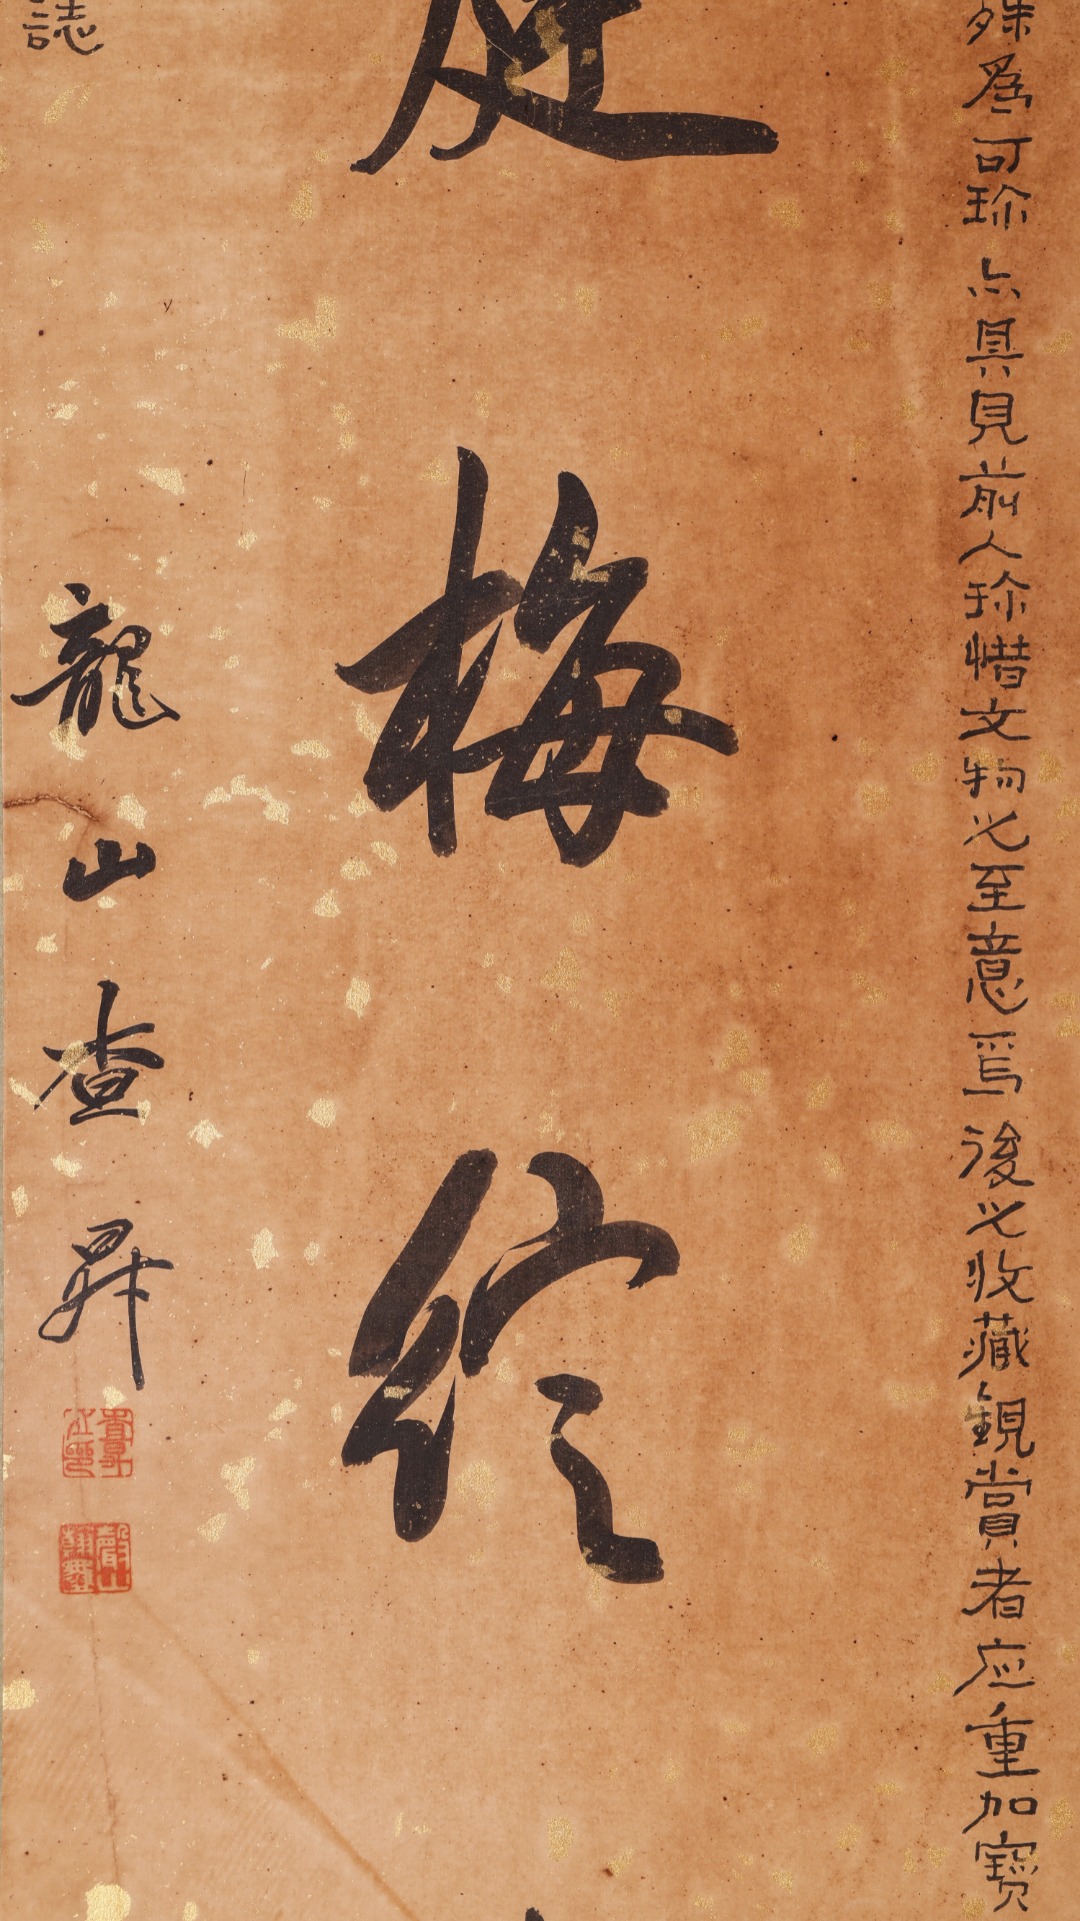 殊為可珎亦具見前人珎惜文物之至意焉後之收藏親賞者应重加寶
庭梅綻
誌
龍山查昇